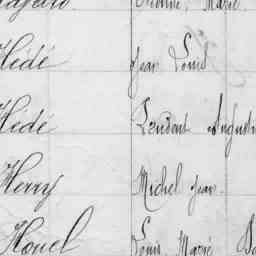 Marie
Hédé Jean Louis
Hédé Prudent
Herry Michel Jean
Houel Louis Marie